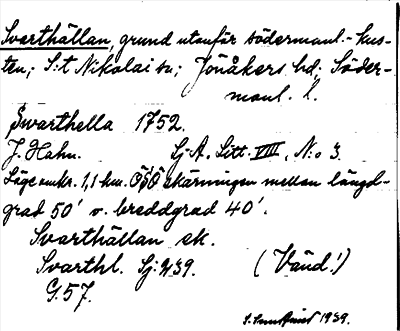 Svarthällan, grund utanför södermanl.-kus-
ten; S:t Nikolai sn; Jönåkers hd; Söder-
manl. l.
Swarthella 1752.
J. Hahn. Sj.A. Litt. VIII, N:o 3.
Läge omkr. 1,1 km. ÖSÖ skärningen mellan längd-
grad 50' o. breddgrad 40'.
Svarthällan ek.
Svarthl. Sj. 239. (Vänd!)
G. 57.
1939.